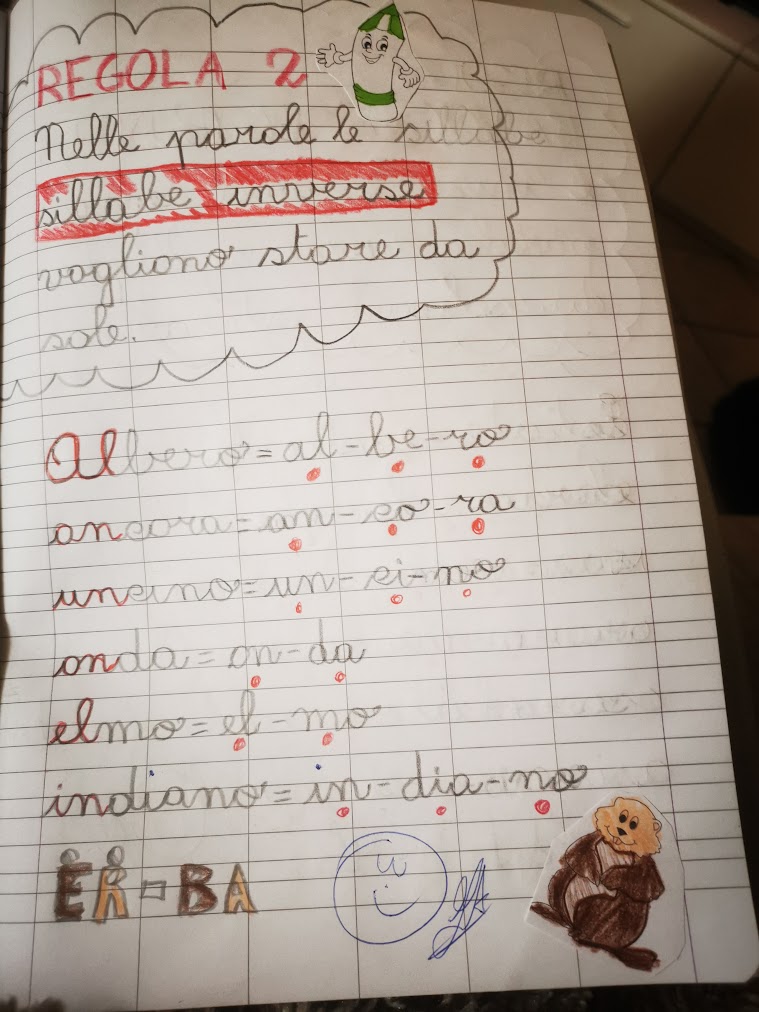 REGOLA 2
Nelle parole le sillabe
sillabe inverse
vogliono stare da
sole.
Albero = al-be-ro
ancora = an-co-ra
uncino = un-ci-no
onda = on-da
elmo = el-mo
indiano = in-dia-no
ER-BA